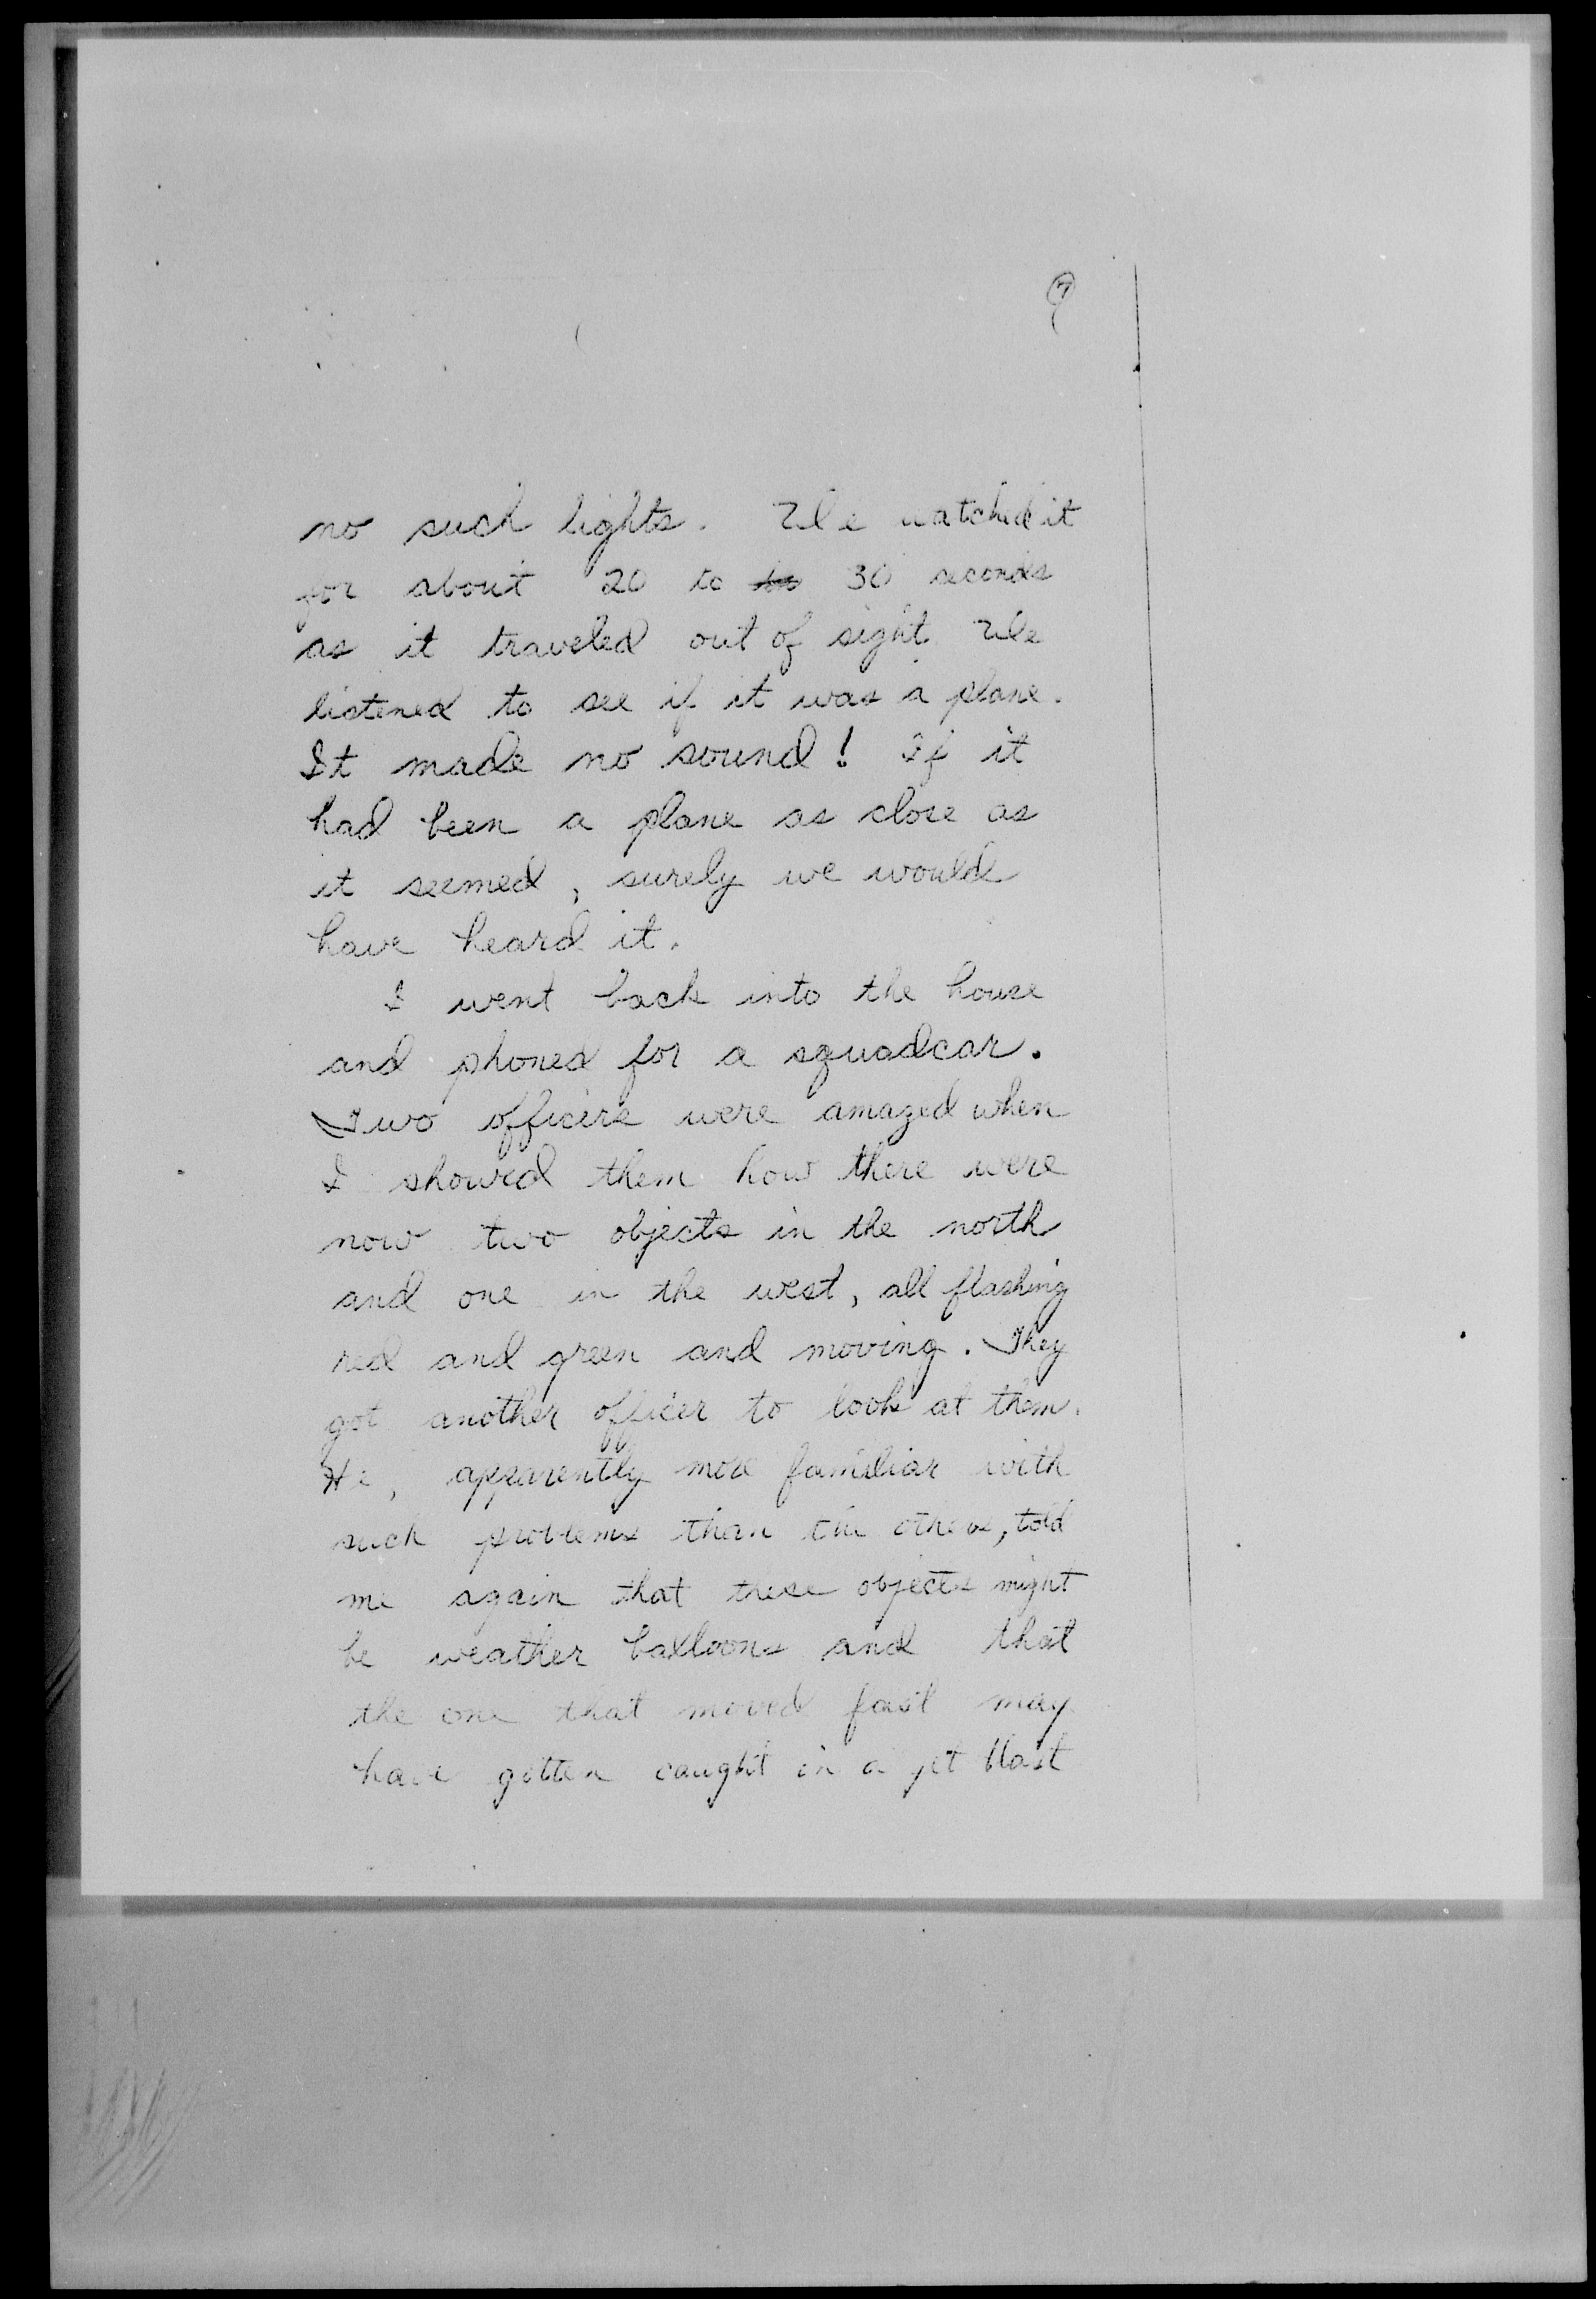 7
no such lights. We watched it
for about 20 to 30 seconds
as it traveled out of sight. We
listened to see if it was a plane.
It made no sound! If it
had been a plane as close as
it seemed, surely we would
have heard it.
I went back into the house
and phoned for a squadcar.
Two officers were amazed when
I showed them how there were
now two objects in the north
and one in the west, all flashing
red and green and moving. They
got another officer to look at them.
He, apparently more familiar with
such problems than the others, told
me again that these objects might
be weather balloons and that
the one that moved fast may
have gotten caught in a jet blast